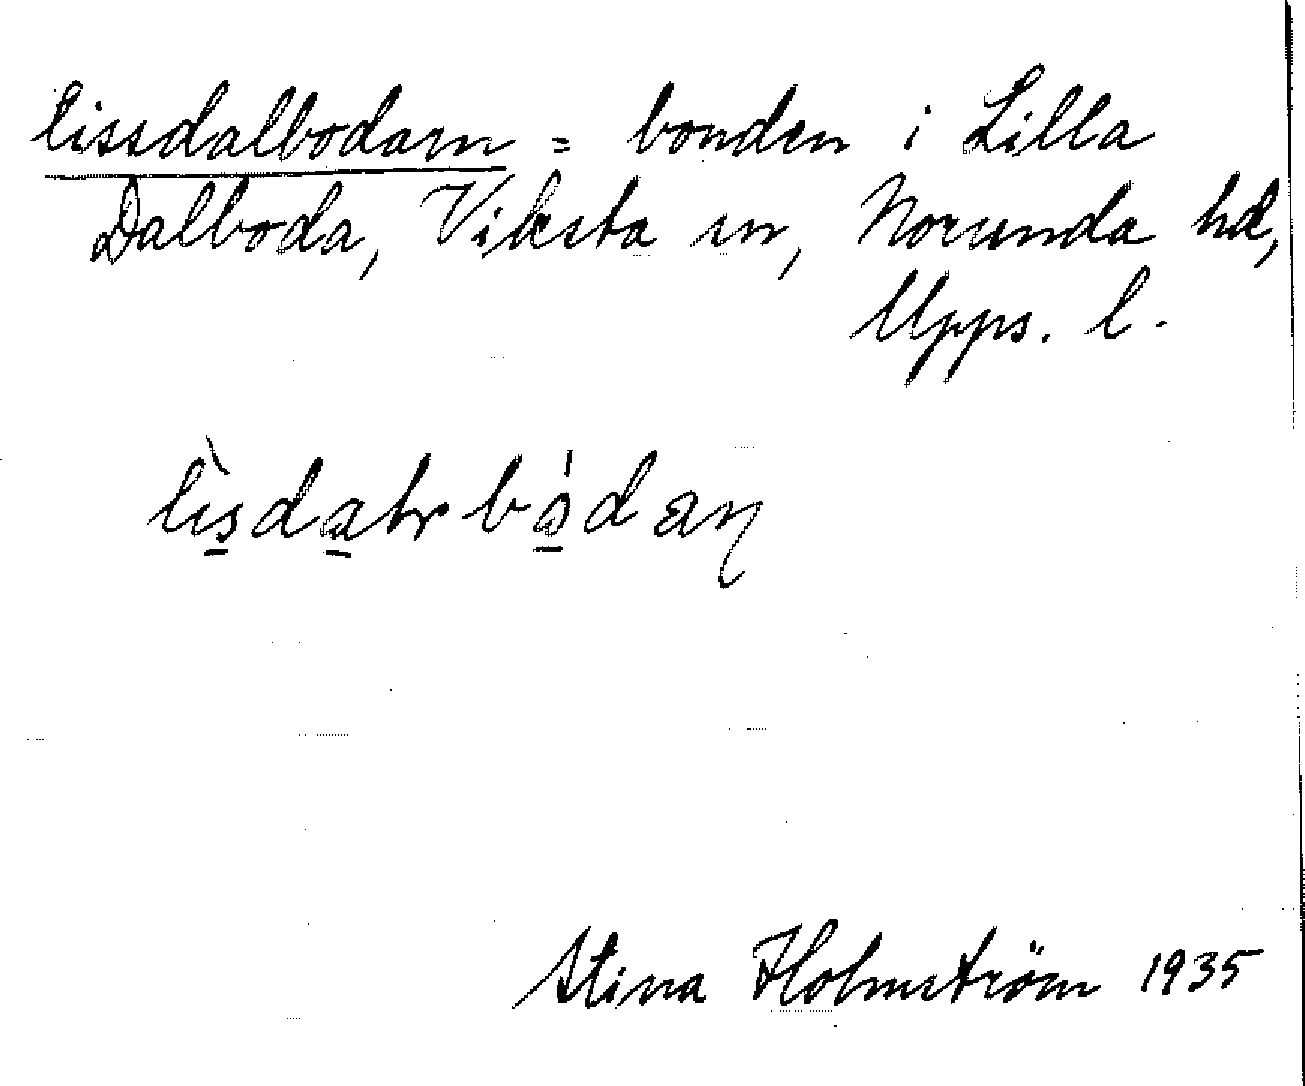 lissdalbodarn = bonden i Lilla
Dalboda, Viksta sn, Norunda hd,
Upps. l.
Stina Holmström 1935